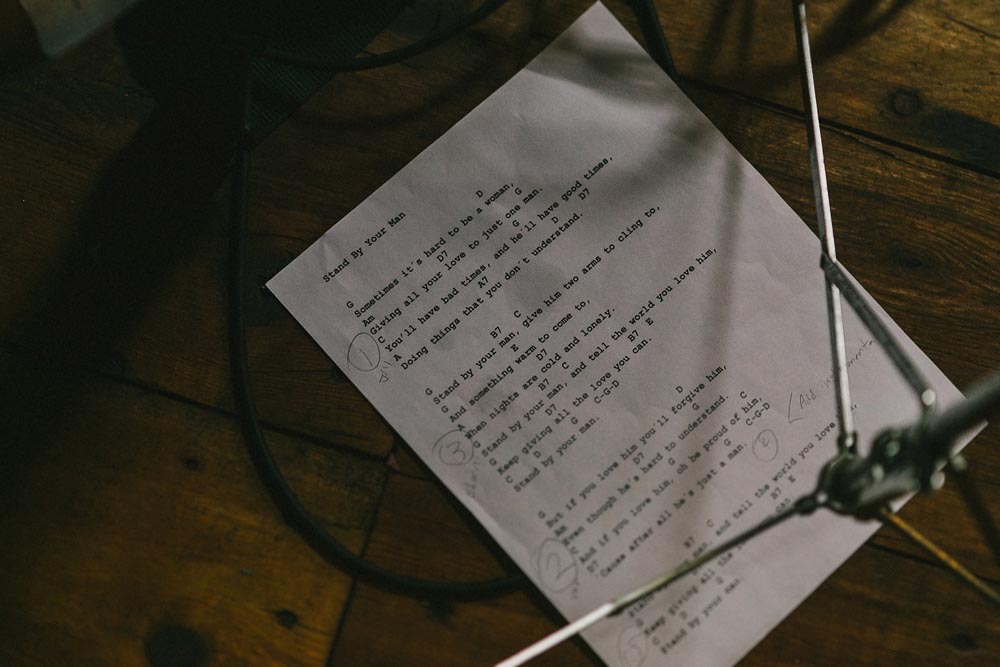 Stand By Your Man
G D
Sometimes it's hard to be a woman,
Am D7 G
Giving all your love to just one man.
C G
You'll have bad times, and he'll have good times,
A A7 D D7
Doing things that you don't understand.
1
G B7 C
Stand by your man, give him two arms to cling to,
G E
And something warm to come to,
A D7
When nights are cold and lonely.
G B7 C
Stand by your man, and tell the world you love him,
G D7 B7 E
Keep giving all the love you can.
C D G C-G-D
Stand by your man.
3
G D
But if you love him you'll forgive him,
Am D7 G
Even though he's hard to understand.
C G C
And if you love him, oh be proud of him,
D7 G C-G-D
Cause after all he's just a man.
2
(Add
B7 C
man, and tell the world you love
B7 E
Keep giving all the can
C D G
Stand by your man.
5